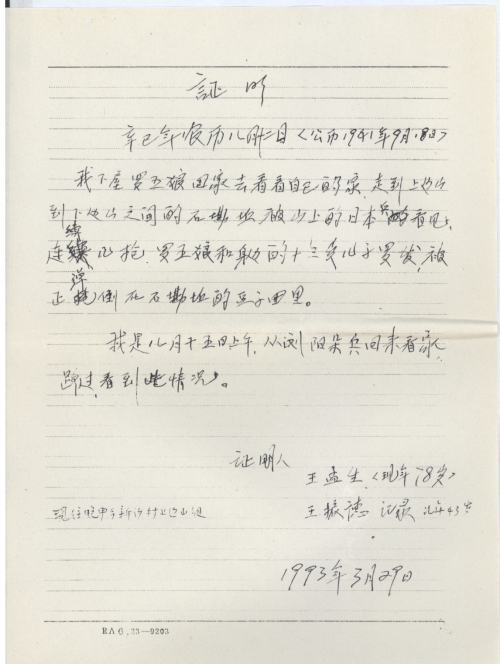 証明
辛巳年农历八月廿二日〈公历1941年9月18日〉
我下屋罗五娘回家去看看自己的家,走到上边山
到下边山之间的石塝坵被山上的日本兵看见,
连续几枪,罗五娘和身边的十三岁儿子罗发,被
正弹倒在石塝坵的豆子田里。
我是八月十五日上午,从浏阳朵兵回来看家,
路过看到些情况。
证明人
王孟生〈现年78岁〉
王振德 记录 现年43岁
现住 新 村上边山组
1993年3月29日
RA6,33—9203